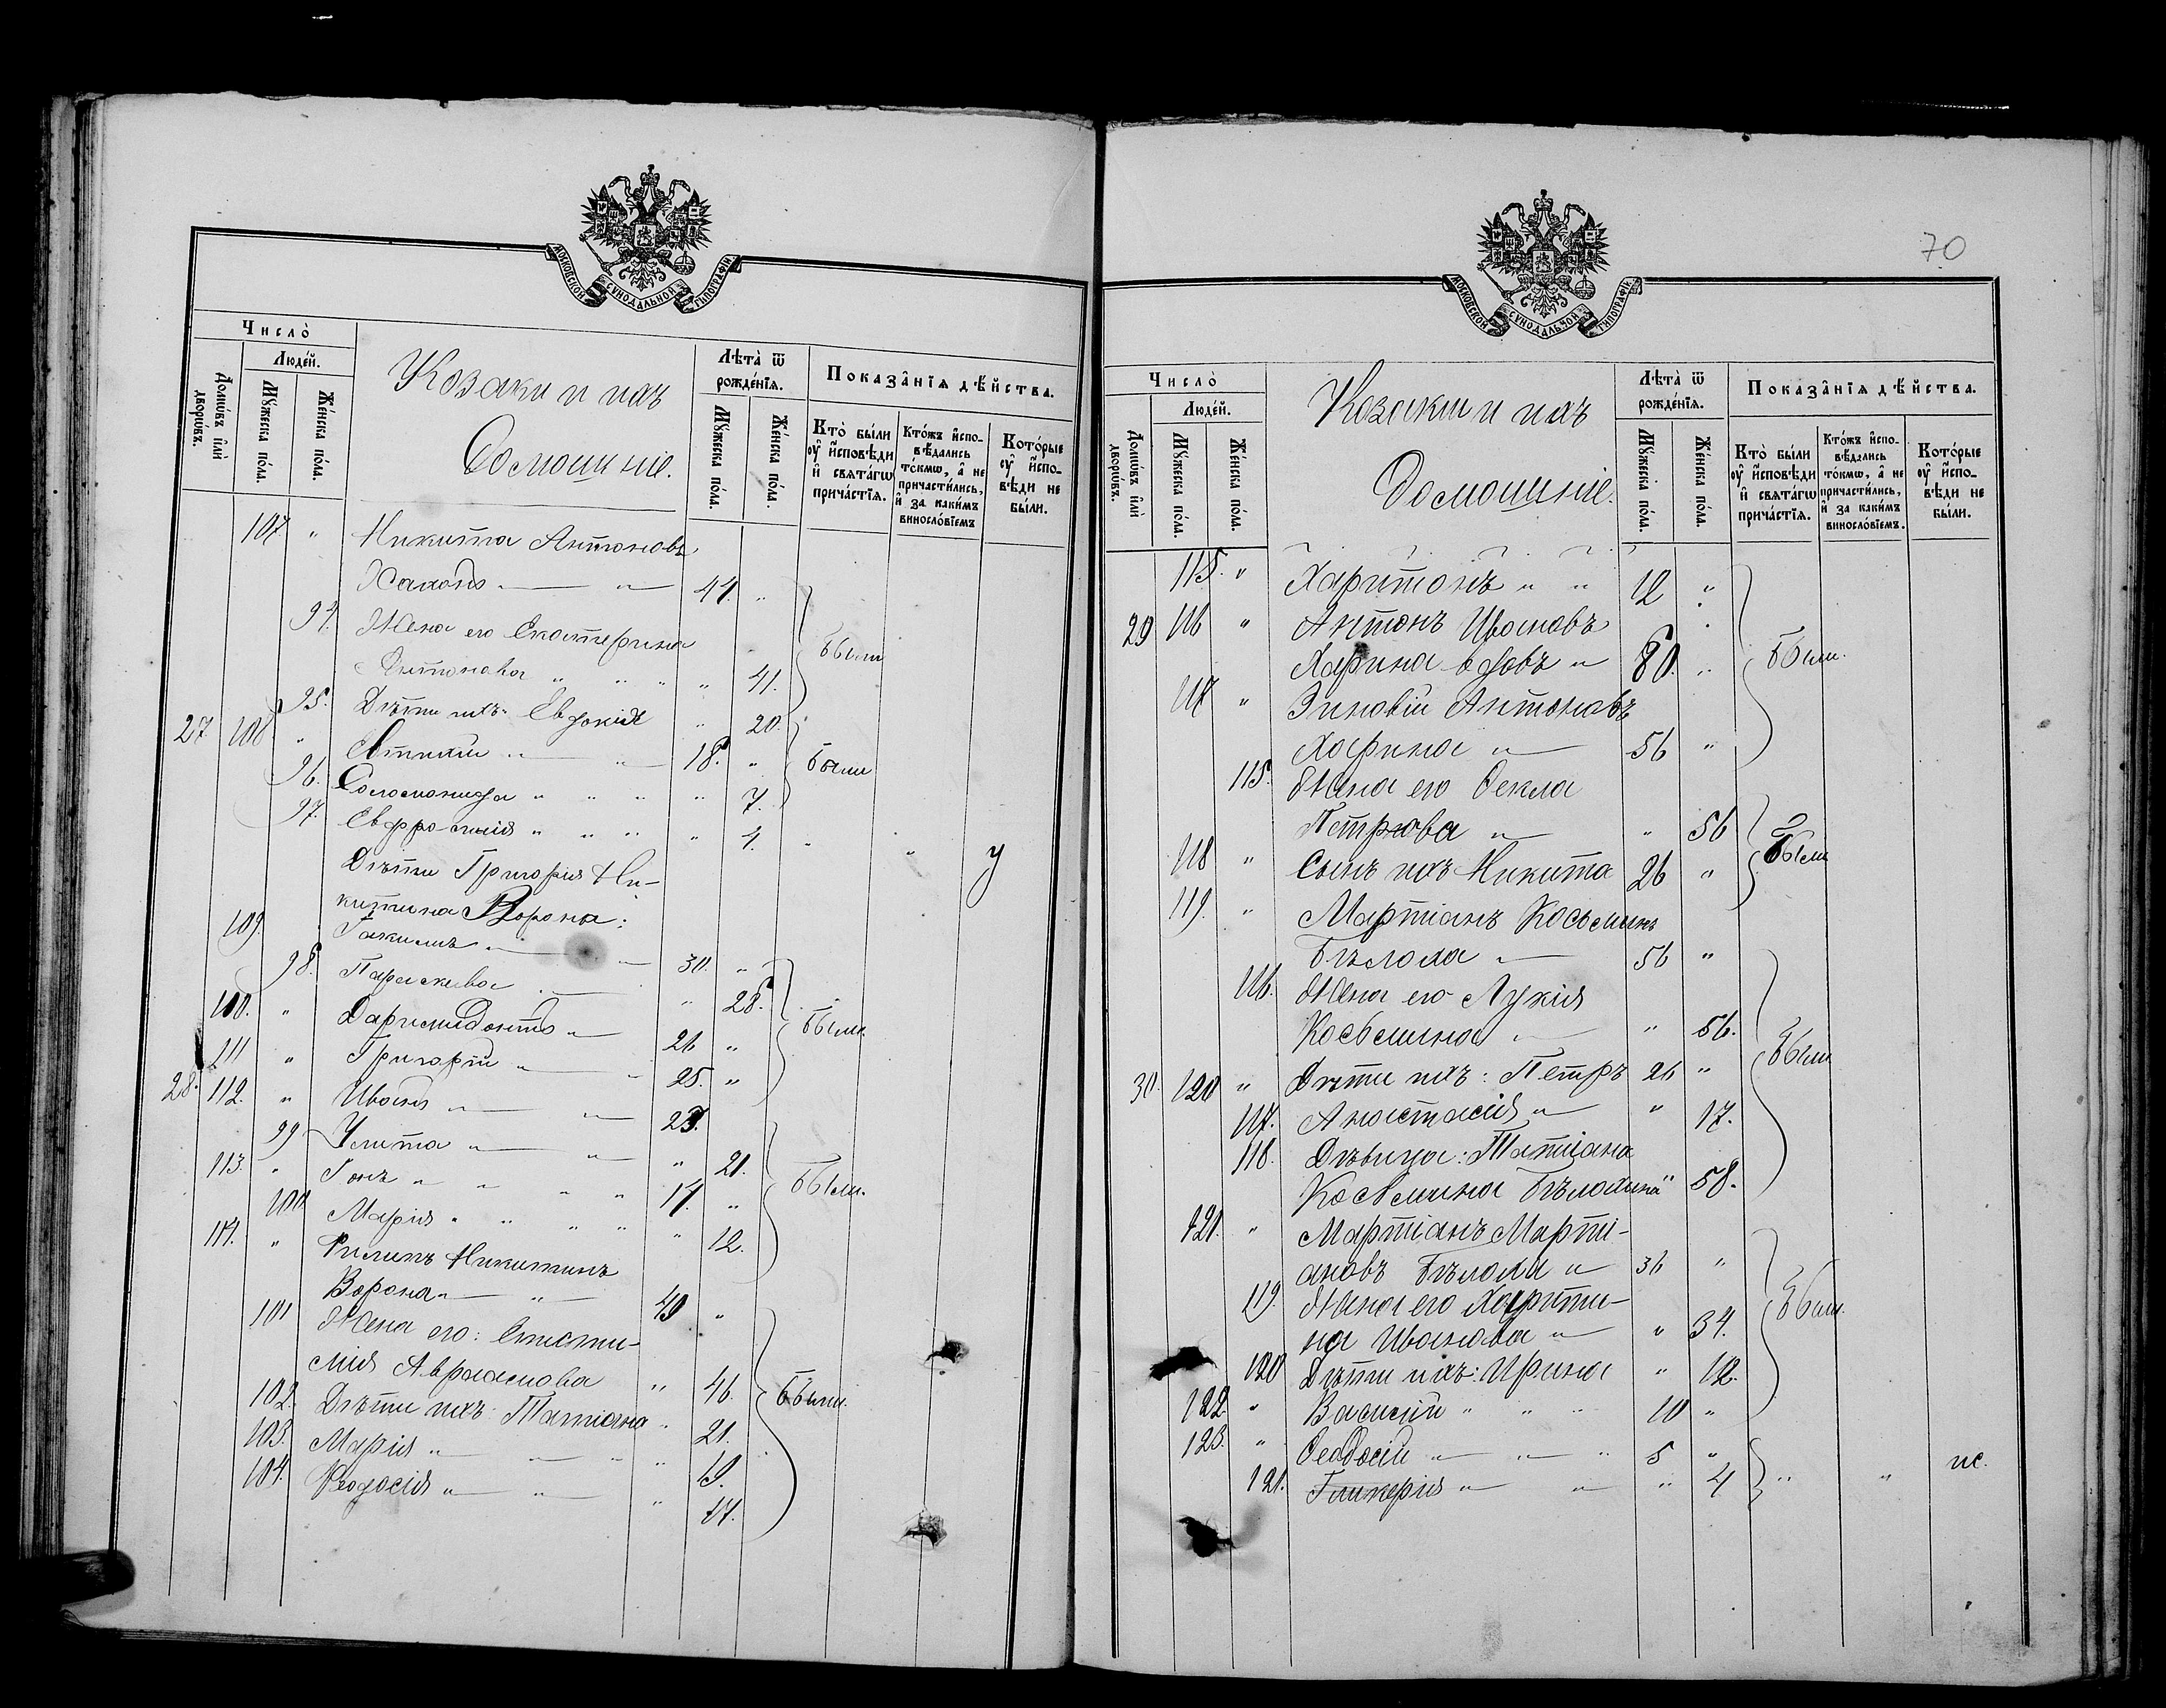 МОСКОВСКОЙ СУНОДАЛЬНОЙ ТИПОГРАФІИ
Число̀
Людей.
Домѡвъ и҆лѝ дворѡ́въ.
Мꙋ́жеска по́ла.
Же́нска по́ла.
Козаки и ихъ
Домашніе.
Лѣта̀ ѿ рожде́нїѧ.
Мꙋ́жеска по́ла.
Же́нска по́ла.
Показа̂нїѧ дѣ́йства.
Кто̀ бы́ли ᲂу҆ и҆сповѣ́ди и҆ свѧта́гѡ прича́стїѧ.
Кто́жъ и҆спо- вѣ́дались то́кмѡ, а҆ не причасти́лись, и҆ за каки́мъ винослѡ́вїемъ
Кото́рые ᲂу҆ и҆спо- вѣ́ди не бы́ли.
107 " Никита Антоновъ
" — " 41. "
94. Жена его Екатерина
Антонова " " " " 41.
Были
95. Дѣти ихъ: Евдокія " 20.
27 108 " Евтихій " — " 18. "
Были
96. Соломонида " " " " 7.
97. Евфросинія " " " " 4. " " у
Дѣти Григорія Ни-
китина Ворона:
109. Іакимъ " — 30. "
98. Параскева " 28.
110. " Даримидонтъ " — 26 "
Были.
111 " Григорій " — " 25. "
28. 112. " Иванъ " — " 23.
99 Улита " — " " 21.
113. " Іонъ " " " " 17. "
Были.
100 Марія " " " " " 12.
114. " Филипъ Никитинъ
Ворона " — " 49 "
101 Жена его:
Авраамова " 46.
Были.
102. Дѣти ихъ: Татіана " 21.
103. Марія " — " " 19.
104. Феодосія " — " " 17.
70
МОСКОВСКОЙ СУНОДАЛЬНОЙ ТИПОГРАФІИ
Число̀
Людей.
Домѡвъ и҆лѝ дворѡ́въ.
Мꙋ́жеска по́ла.
Же́нска по́ла.
Козаки и ихъ
Домашніе.
Лѣта̀ ѿ рожде́нїѧ.
Мꙋ́жеска по́ла.
Же́нска по́ла.
Показа̂нїѧ дѣ́йства.
Кто̀ бы́ли ᲂу҆ и҆сповѣ́ди и҆ свѧта́гѡ прича́стїѧ.
Кто́жъ и҆спо- вѣ́дались то́кмѡ, а҆ не причасти́лись, и҆ за каки́мъ винослѡ́вїемъ.
Кото́рые ᲂу҆ и҆спо- вѣ́ди не бы́ли.
115. " Харитонъ " " 12 "
29 116 " Антонъ Ивановъ
Харина вдовъ " 80. "
Были.
117 " Зиновій Антоновъ
Харина " — 56 "
115. Жена его Ѳекла
Петрова " — " 56
118 " Сынъ ихъ Никита 26 "
Были
119. " Мартіанъ Косьминъ
Бѣлоха " — 56 "
116. Жена его Лукія
Косьмина " — " 56.
Были
30. 120 " Дѣти ихъ: Петръ 26 "
117. Анастасія " — " 17.
118. Дѣвица: Татіана
Косьмина " 58.
121. " Мартіанъ Марті-
ановъ Бѣлоха " — 36 "
119. Жена его Харити-
на Иванова " — " 34.
Были.
120 Дѣти ихъ: Ирина " 12.
122. " Василій " " " 10 "
123. " Ѳеодосій " — " — " 5 "
121. Гликерія " — " " 4 " " ис.